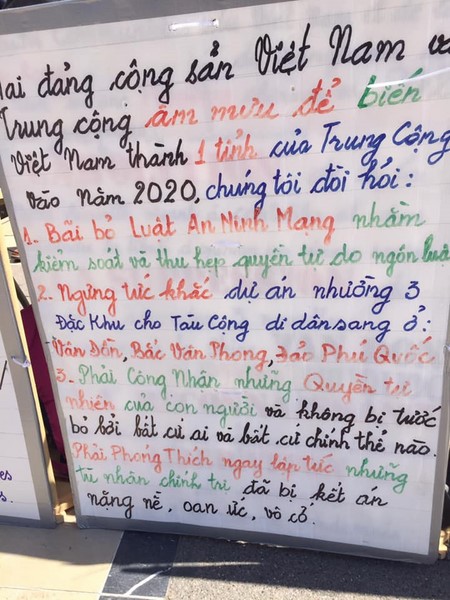 Hai đảng cộng sản Việt Nam và
Trung cộng âm mưu để biến
Việt Nam thành 1 tỉnh của Trung Cộng
vào năm 2020, chúng tôi đòi hỏi:
1. Bãi bỏ Luật An Ninh Mạng nhằm
kiểm soát và thu hẹp quyền tự do ngôn luận
2. Ngưng tức khắc dự án nhượng 3
Đặc Khu cho Tàu Cộng di dân sang ở:
Vân Đồn, Bắc Vân Phong, Đảo Phú Quốc
3. Phải Công Nhận những Quyền tự
nhiên của con người và không bị tước
bỏ bởi bất cứ ai và bất cứ chính thể nào.
Phải Phóng Thích ngay lập tức những
tù nhân chính trị đã bị kết án
nặng nề, oan ức, vô cớ.